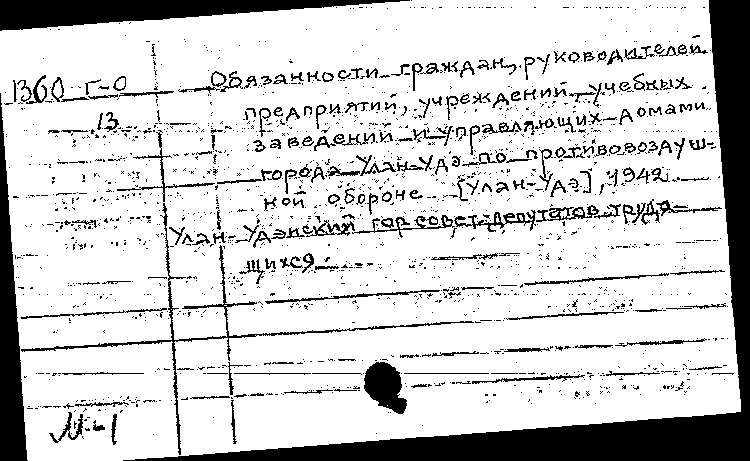 1360 г-о Обязанности граждан, руководителей
13 предприятий, учреждений, учебных
заведений и управляющих домами
города Улан-Удэ по противовоздуш-
ной обороне [Улан-Удэ], 1942.
Улан-Удэнский гор совет депутатов трудя-
щихся.
М-1